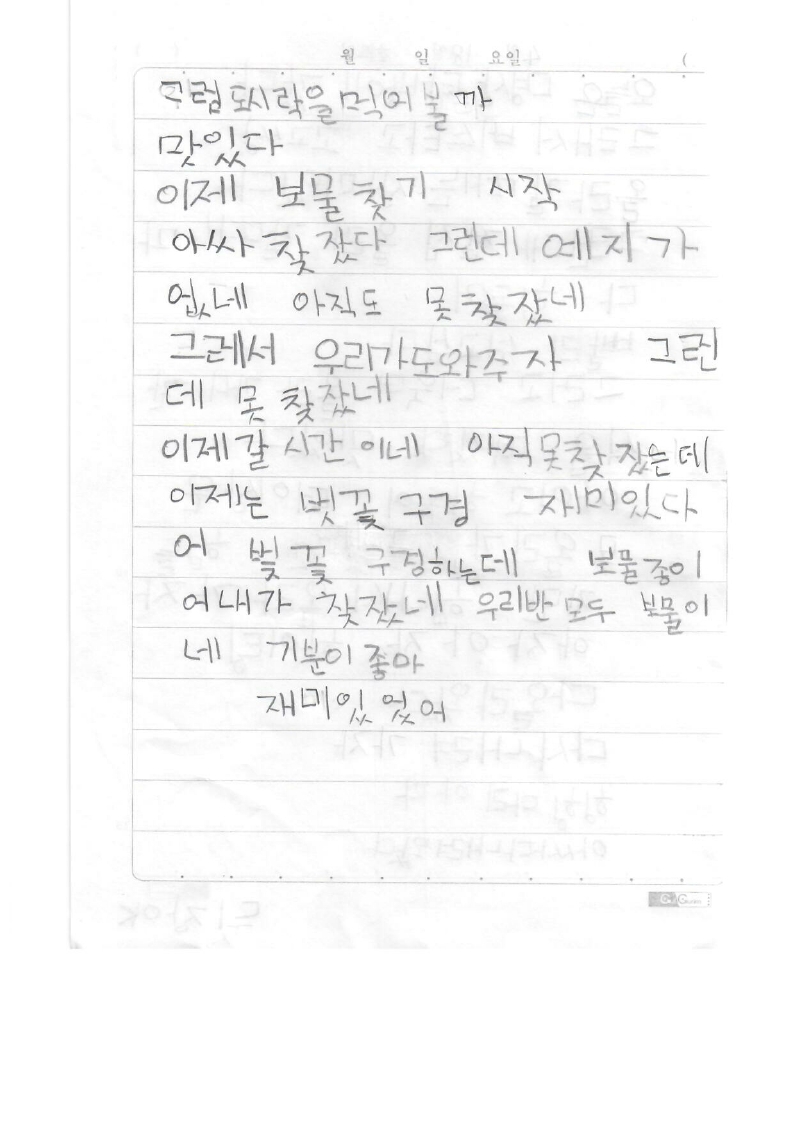 월 일 요일 (
그럼 도시락을 먹어 볼까
맛있다
이제 보물 찾기 시작
아싸 찾잤다 그런데 예지가
없네 아직도 못 찾잤네
그레서 우리가도와주자 그런
데 못 찾잤네
이제갈 시간이네 아직못찾잤는데
이제는 벗꽃 구경 재미있다
어 빛꽃 구경하는데 보물종이
어 내가 찾잤네 우리반 모두 보물이
네 기분이 좋아
재미있었어